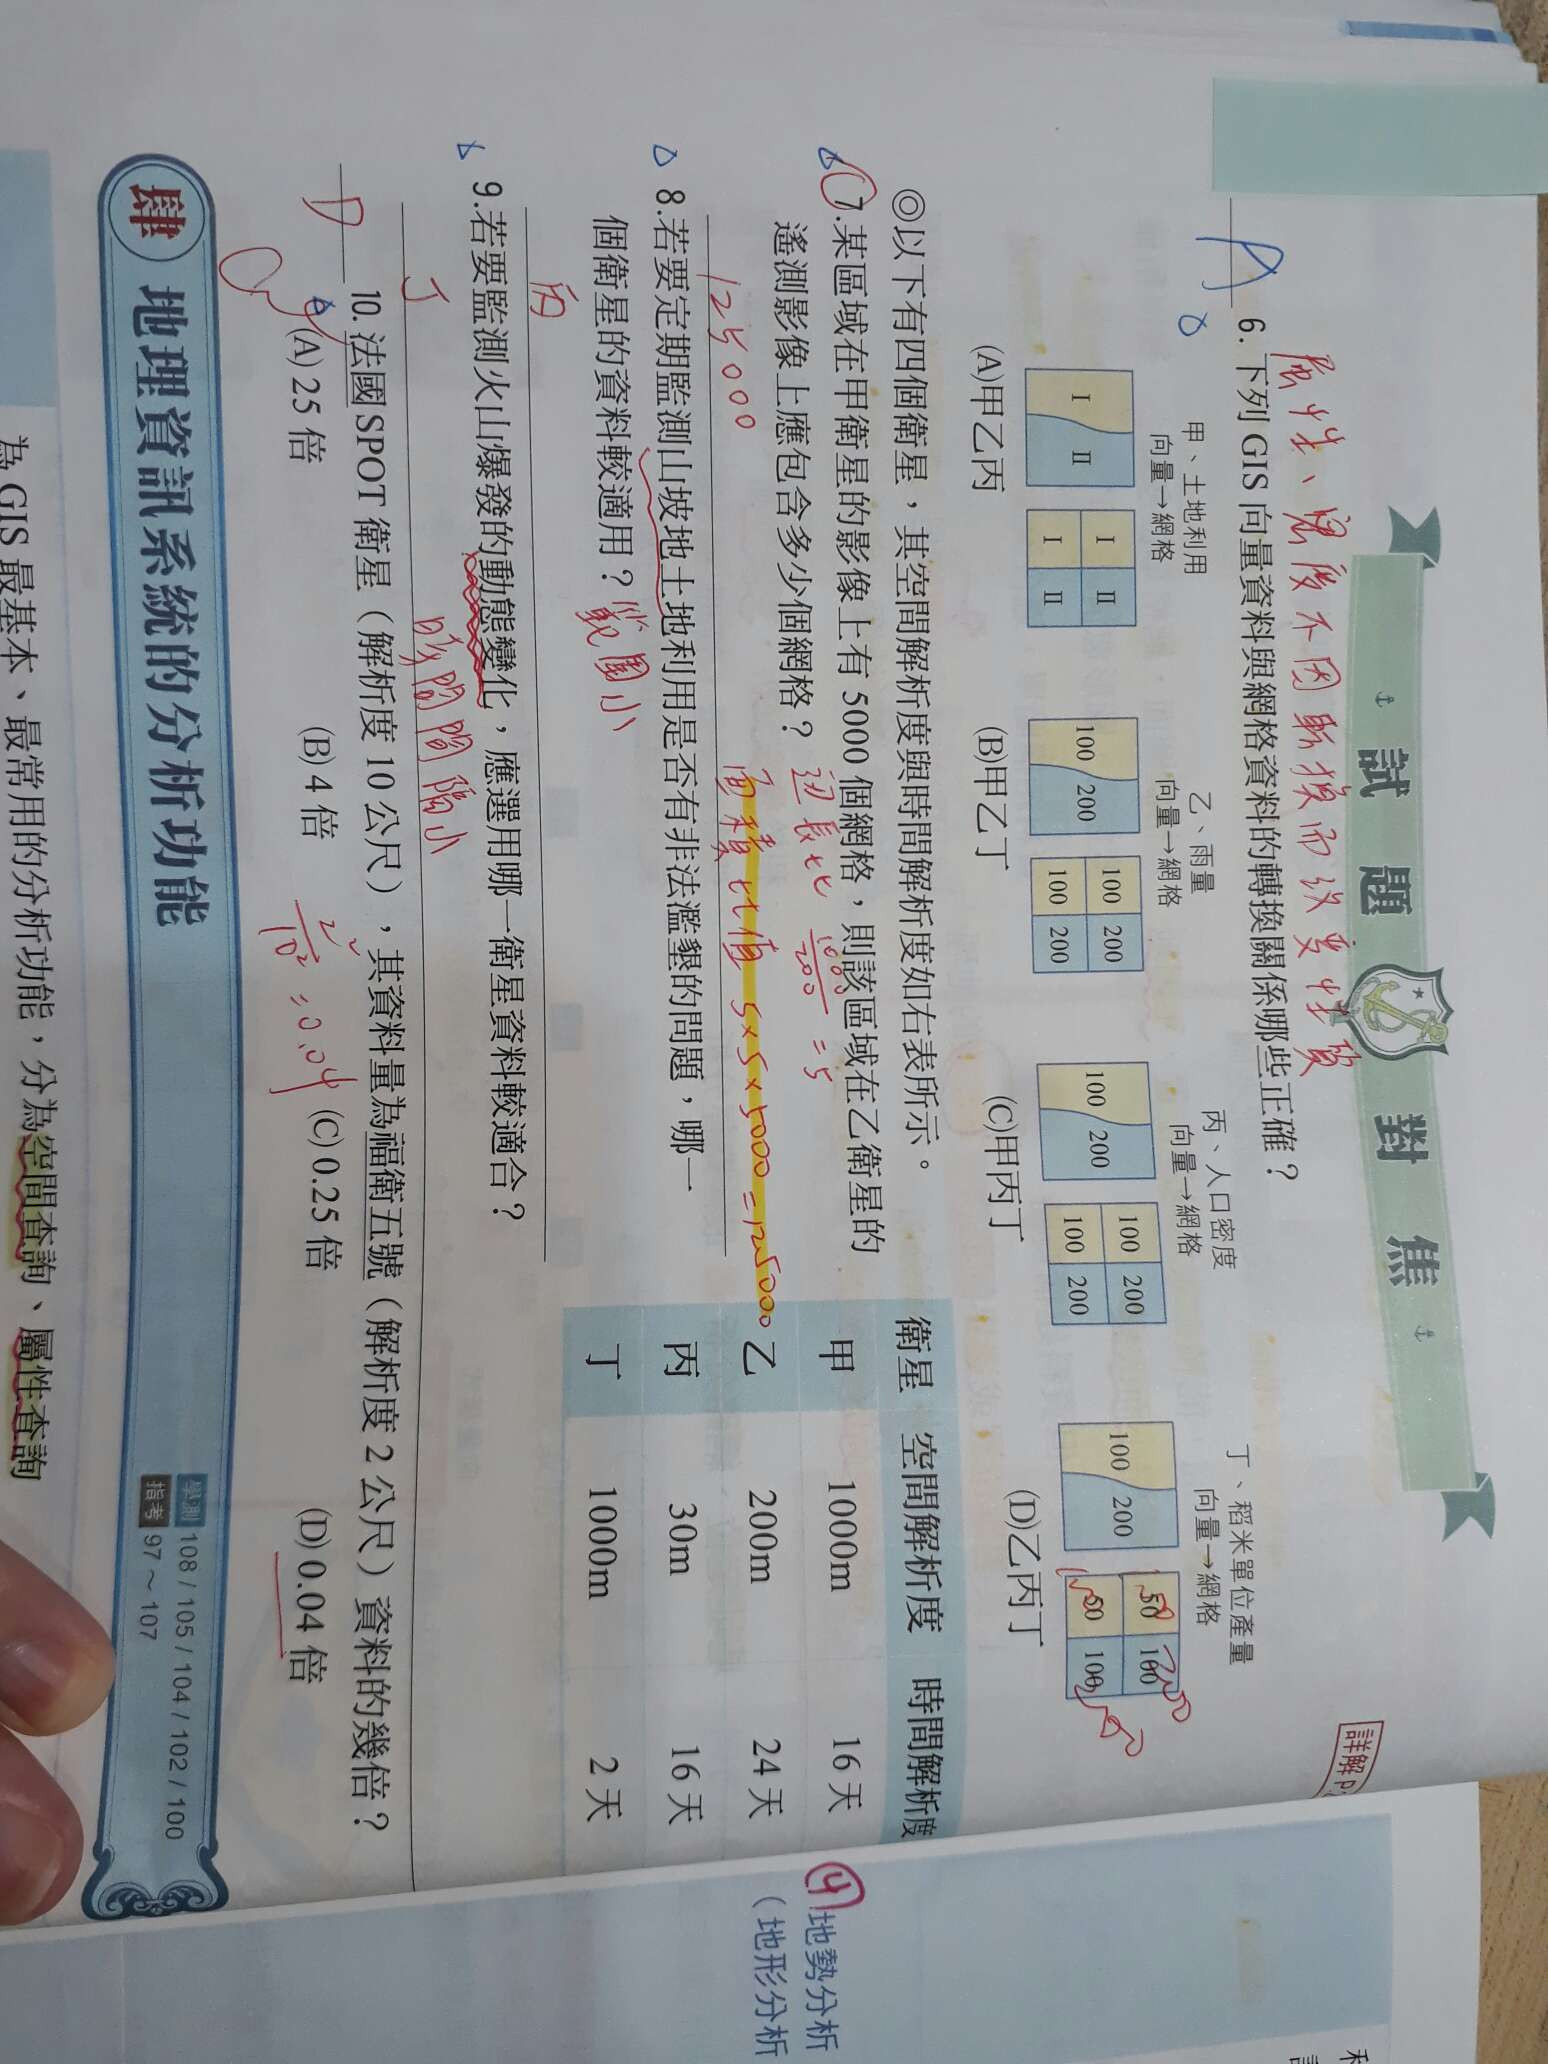 試題對焦
詳解 P.
屬性、密度不因轉換而改變性質
A 6. 下列 GIS 向量資料與網格資料的轉換關係哪些正確？
甲、土地利用 向量→網格
I II
I II
I II
乙、雨量 向量→網格
100 200
100 200
100 200
丙、人口密度 向量→網格
100 200
100 200
100 200
丁、稻米單位產量 向量→網格
100 200
50 100
50 100
(A)甲乙丙 (B)甲乙丁 (C)甲丙丁 (D)乙丙丁
◎以下有四個衛星，其空間解析度與時間解析度如右表所示。
7.某區域在甲衛星的影像上有 5000 個網格，則該區域在乙衛星的
遙測影像上應包含多少個網格？
邊長比 1000/200 = 5
125000
面積比值 5×5×5000 = 125000
8.若要定期監測山坡地土地利用是否有非法濫墾的問題，哪一
個衛星的資料較適用？
範圍小
丙
9.若要監測火山爆發的動態變化，應選用哪一衛星資料較適合？
丁 時間間隔小
衛星 空間解析度 時間解析度
甲 1000m 16 天
乙 200m 24 天
丙 30m 16 天
丁 1000m 2 天
D 10. 法國SPOT 衛星（解析度 10 公尺），其資料量為福衛五號（解析度 2 公尺）資料的幾倍？
(A) 25 倍 (B) 4 倍 (C) 0.25 倍 (D) 0.04 倍
2²/10² = 0.04
肆 地理資訊系統的分析功能
學測 108 / 105 / 104 / 102 / 100
指考 97～107
為 GIS 最基本、最常用的分析功能，分為空間查詢、屬性查詢
(4)地勢分析
（地形分析